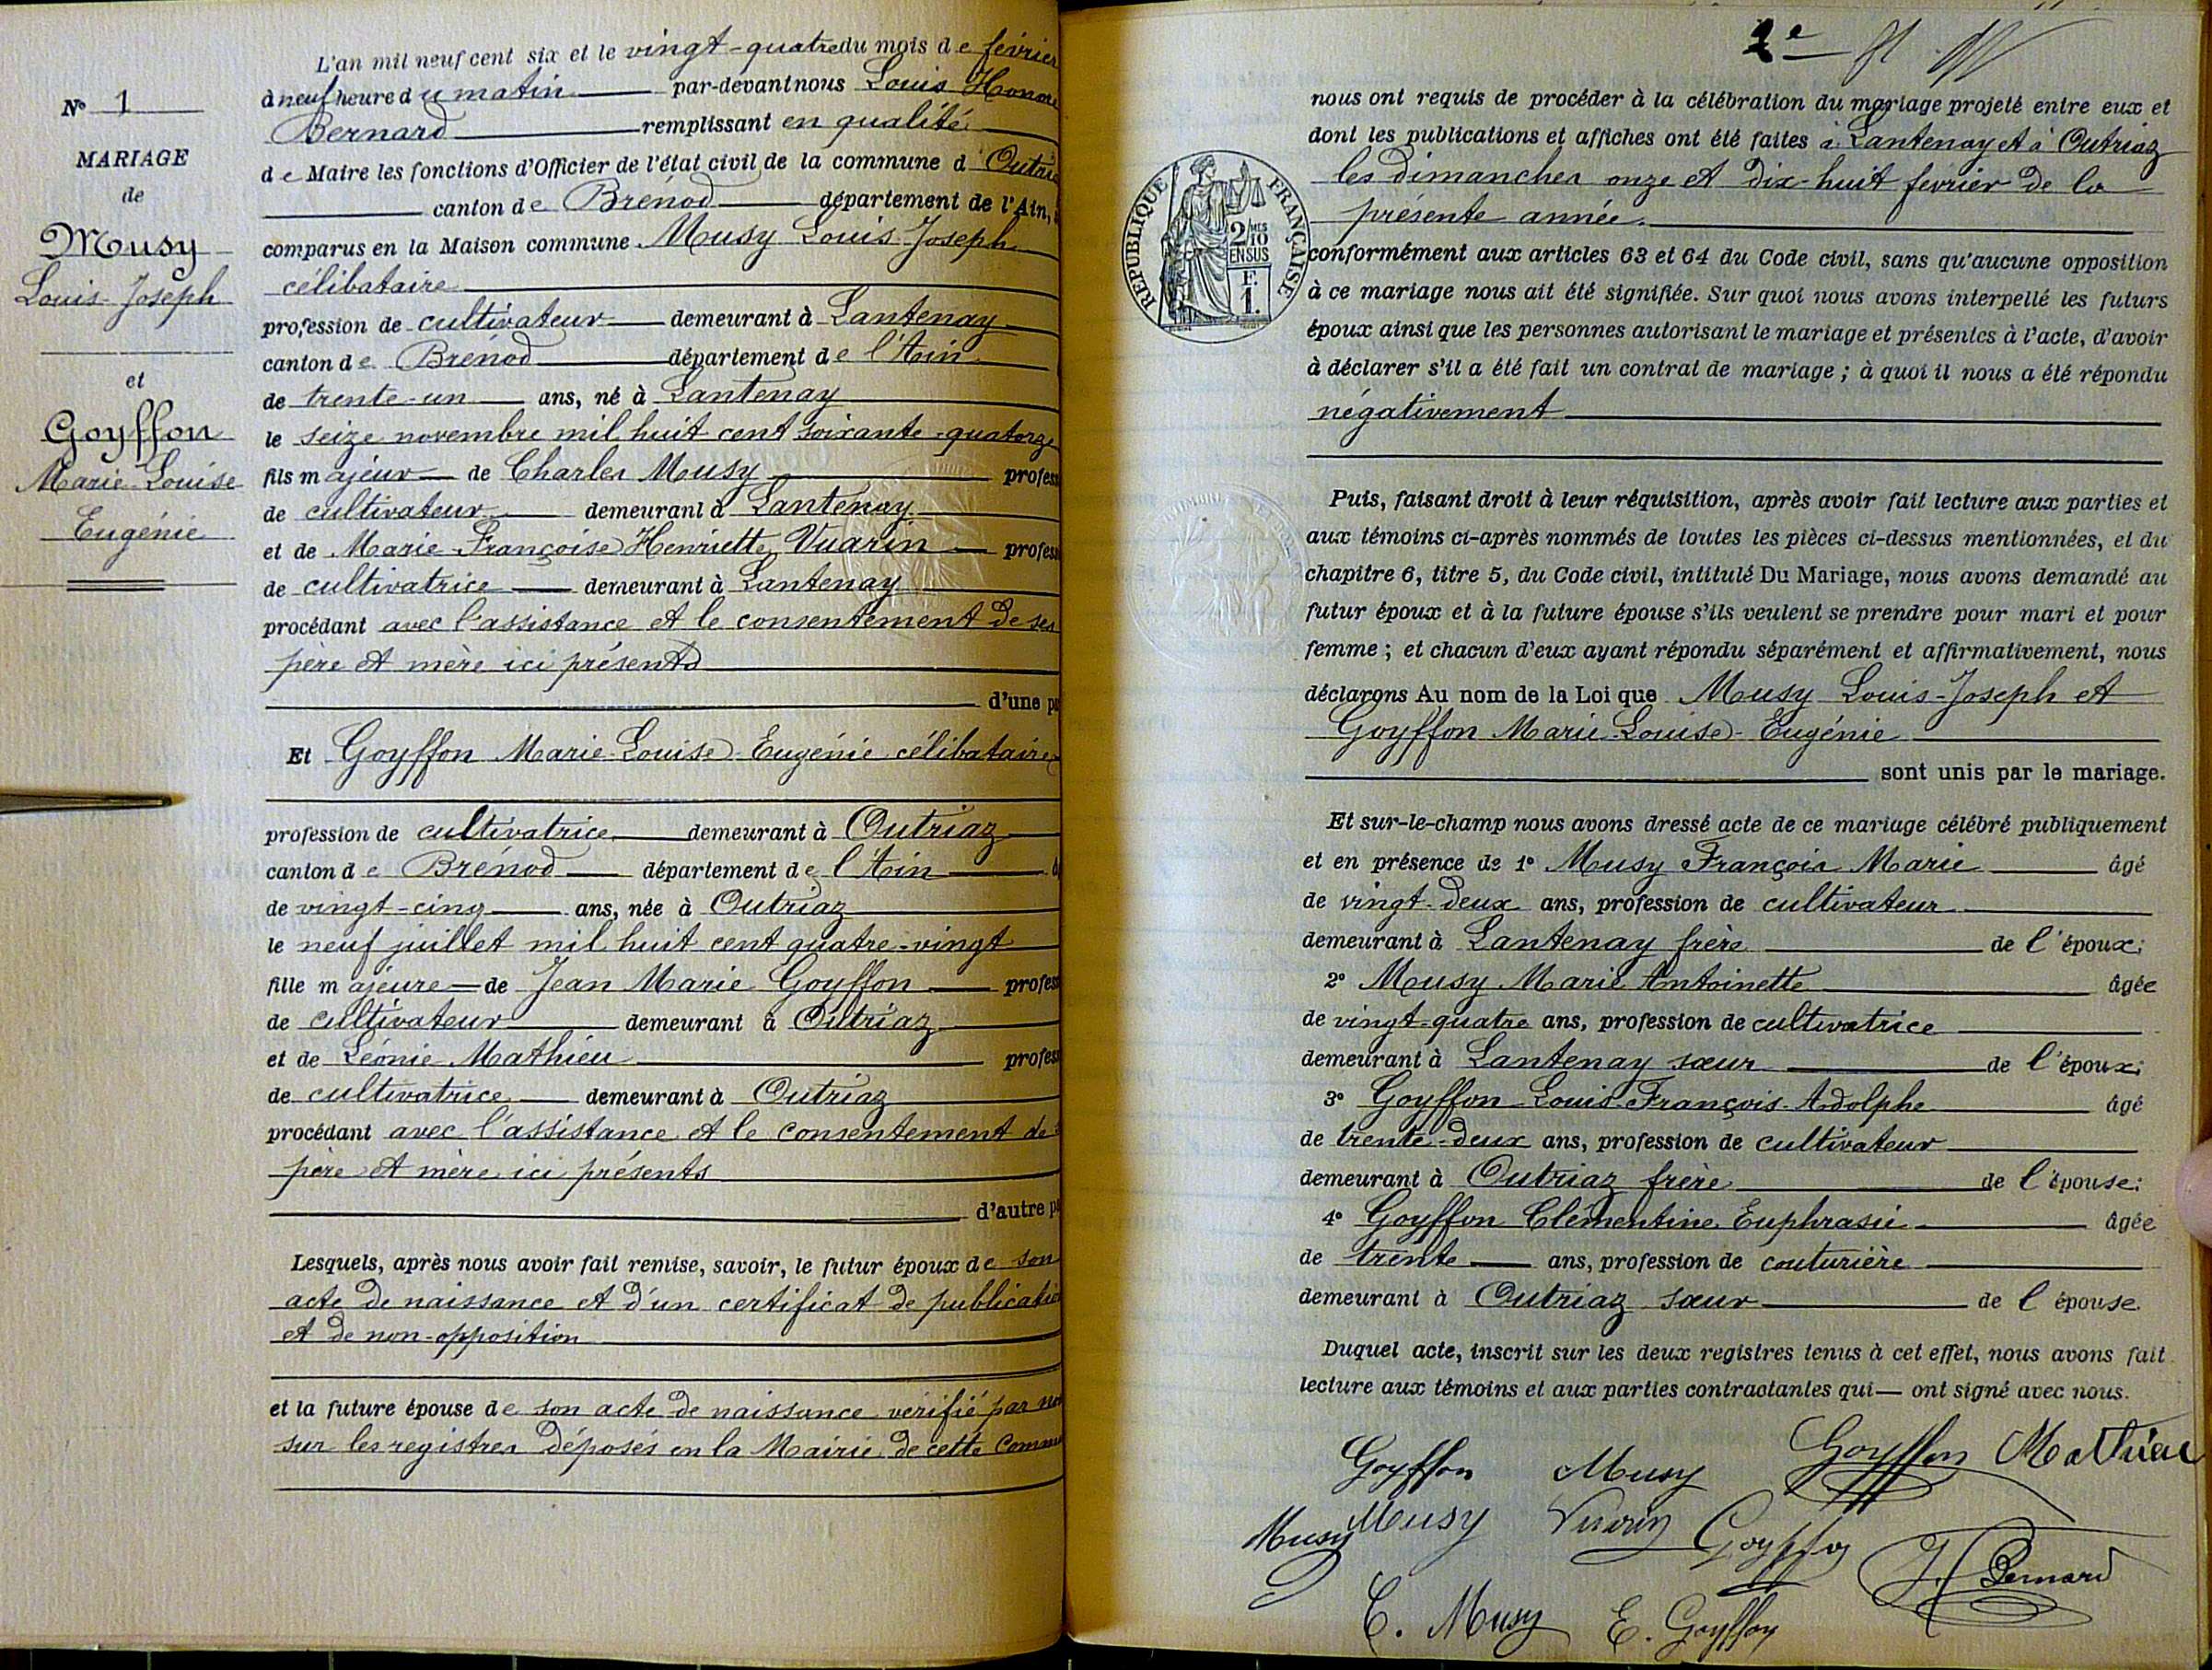 L'an mil neuf cent six et le vingt-quatre du mois de février
à neuf heure du matin par-devant nous Louis Honoré
Bernard remplissant en qualité
de Maire les fonctions d'Officier de l'état civil de la commune d'Outria
canton de Brénod département de l'Ain,
comparus en la Maison commune Musy Louis Joseph
célibataire
profession de cultivateur demeurant à Lantenay
canton de Brénod département de l'Ain
de trente-un ans, né à Lantenay
le seize novembre mil huit cent soixante-quatorze
fils majeur de Charles Musy profess
de cultivateur demeurant à Lantenay
et de Marie Françoise Henriette Vuarin profess
de cultivatrice demeurant à Lantenay
procédant avec l'assistance et le consentement de ses
père et mère ici présents
d'une pa
Et Goyffon Marie-Louise-Eugénie célibataire
profession de cultivatrice demeurant à Outriaz
canton de Brénod département de l'Ain
de vingt-cinq ans, née à Outriaz
le neuf juillet mil huit cent quatre-vingt
fille majeure de Jean Marie Goyffon profess
de cultivateur demeurant à Outriaz
et de Léonie Mathieu profess
de cultivatrice demeurant à Outriaz
procédant avec l'assistance et le consentement de
père et mère ici présents
d'autre pa
Lesquels, après nous avoir fait remise, savoir, le futur époux de son
acte de naissance et d'un certificat de publication
et de non-opposition
et la future épouse de son acte de naissance vérifié par nous
sur les registres déposés en la Mairie de cette commu
N° 1
MARIAGE
de
Musy
Louis-Joseph
et
Goyffon
Marie-Louise
Eugénie
2e
nous ont requis de procéder à la célébration du mariage projeté entre eux et
dont les publications et affiches ont été faites à Lantenay et à Outriaz
les dimanches onze et dix-huit fevrier de la
présente année.
conformément aux articles 63 et 64 du Code civil, sans qu'aucune opposition
à ce mariage nous ait été signifiée. Sur quoi nous avons interpellé les futurs
époux ainsi que les personnes autorisant le mariage et présentes à l'acte, d'avoir
à déclarer s'il a été fait un contrat de mariage ; à quoi il nous a été répondu
négativement
Puis, faisant droit à leur réquisition, après avoir fait lecture aux parties et
aux témoins ci-après nommés de toutes les pièces ci-dessus mentionnées, et du
chapitre 6, titre 5, du Code civil, intitulé Du Mariage, nous avons demandé au
futur époux et à la future épouse s'ils veulent se prendre pour mari et pour
femme ; et chacun d'eux ayant répondu séparément et affirmativement, nous
déclarons Au nom de la Loi que Musy Louis-Joseph et
Goyffon Marie-Louise-Eugénie
sont unis par le mariage.
Et sur-le-champ nous avons dressé acte de ce mariage célébré publiquement
et en présence de 1° Musy François Marie âgé
de vingt-deux ans, profession de cultivateur
demeurant à Lantenay frère de l'époux;
2° Musy Marie Antoinette âgée
de vingt-quatre ans, profession de cultivatrice
demeurant à Lantenay sœur de l'époux;
3° Goyffon Louis-François-Adolphe âgé
de trente-deux ans, profession de cultivateur
demeurant à Outriaz frère de l'épouse;
4° Goyffon Clémentine Euphrasie âgée
de trente ans, profession de couturière
demeurant à Outriaz sœur de l'épouse.
Duquel acte, inscrit sur les deux registres tenus à cet effet, nous avons fait
lecture aux témoins et aux parties contractantes qui ont signé avec nous.
Goyffon Musy Goyffon Mathieu
Musy Musy Vuarin Goyffon Bernard
C. Musy E. Goyffon
RÉPUBLIQUE FRANÇAISE
2/10 MES
EN SUS
F.
1.